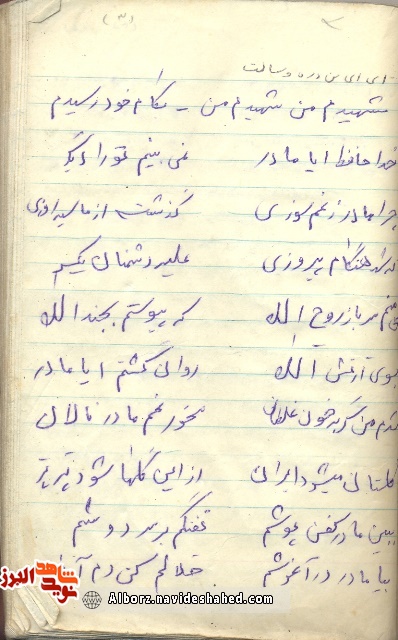 (۳)
ای ای بی دره و سالت
شهیدم من شهیدم من - بکام خود رسیدم
خدا حافظ ایا مادر نمی بینم تو را دیگر
چرا مادر ز غم سوزی گذشت از ما سیه روزی
که شد هنگام پیروزی علیه دشمنان یکسر
منم سرباز روح الله که پیوستم بجند الله
بسوی ارتش الله روان گشتم ایا مادر
شدم من گر به خون غلطان مخور غم مادر نالان
گلستان میشود ایران از این گلهای
ببین مادر کفن پوشم تفنگم بر سر دوشم
بیا مادر در آغوشم حلالم کن دم
شاهد البرز
نوید
Alborz.navideshahed.com